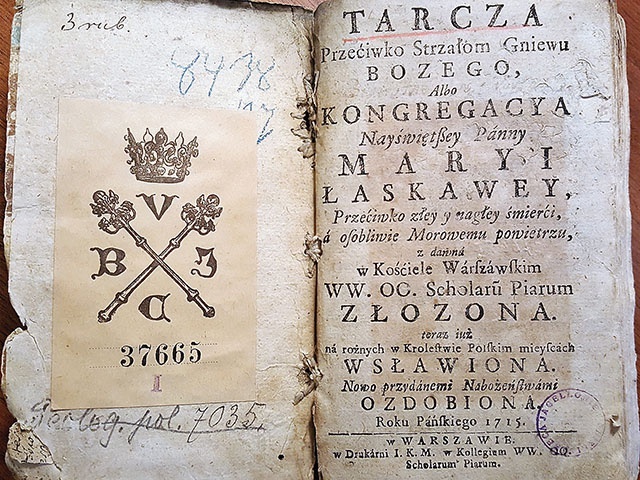 3 rub.
V
B J
C
37665
1
Theolog. pol. 7035.
TARCZA
Przećiwko Strzałom Gniewu
BOZEGO,
Albo
KONGREGACYA
Nayświętßey Panny
MARYI
ŁASKAWEY,
Przećiwko złey y nagłey śmierći,
á oſobliwie Morowemu powietrzu,
z dawná
w Kośćiele Wárszáwskim
WW. OC. Scholarũ Piarum
ZŁOZONA.
teraz iuż
ná rożnych w Kroleſtwie Polſkim mieyſcách
WSŁAWIONA.
Nowo przydánemi Nabożeńſtwámi
OZDOBIONA.
Roku Páńſkiego 1715.
w WARSZAWIE.
w Drukárni I. K. M. w Kollegium WW. OO.
Scholarum Piarum.